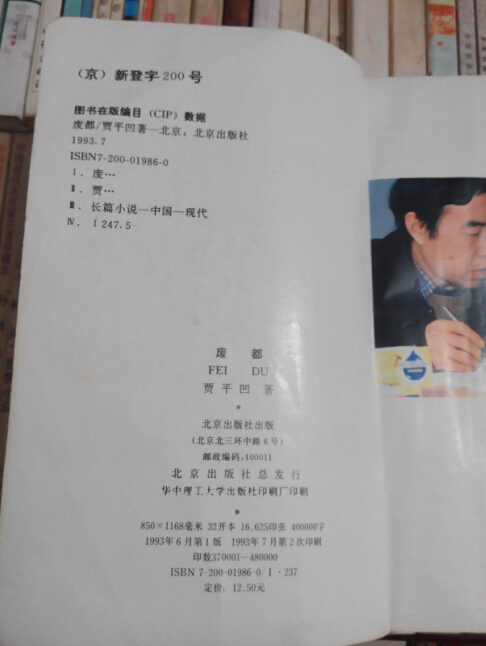 （京）新登字200号
图书在版编目（CIP）数据
废都/贾平凹著—北京：北京出版社
1993.7
ISBN7-200-01986-0
Ⅰ．废…
Ⅱ．贾…
Ⅲ．长篇小说—中国—现代
Ⅳ．Ⅰ247.5
废 都
FEI DU
贾平凹著
北京出版社出版
（北京北三环中路6号）
邮政编码：100011
北京出版社总发行
华中理工大学出版社印刷厂印刷
850×1168毫米 32开本 16.625印张 400000字
1993年6月第1版 1993年7月第2次印刷
印数370001-480000
ISBN 7-200-01986-0/Ⅰ·237
定价：12.50元